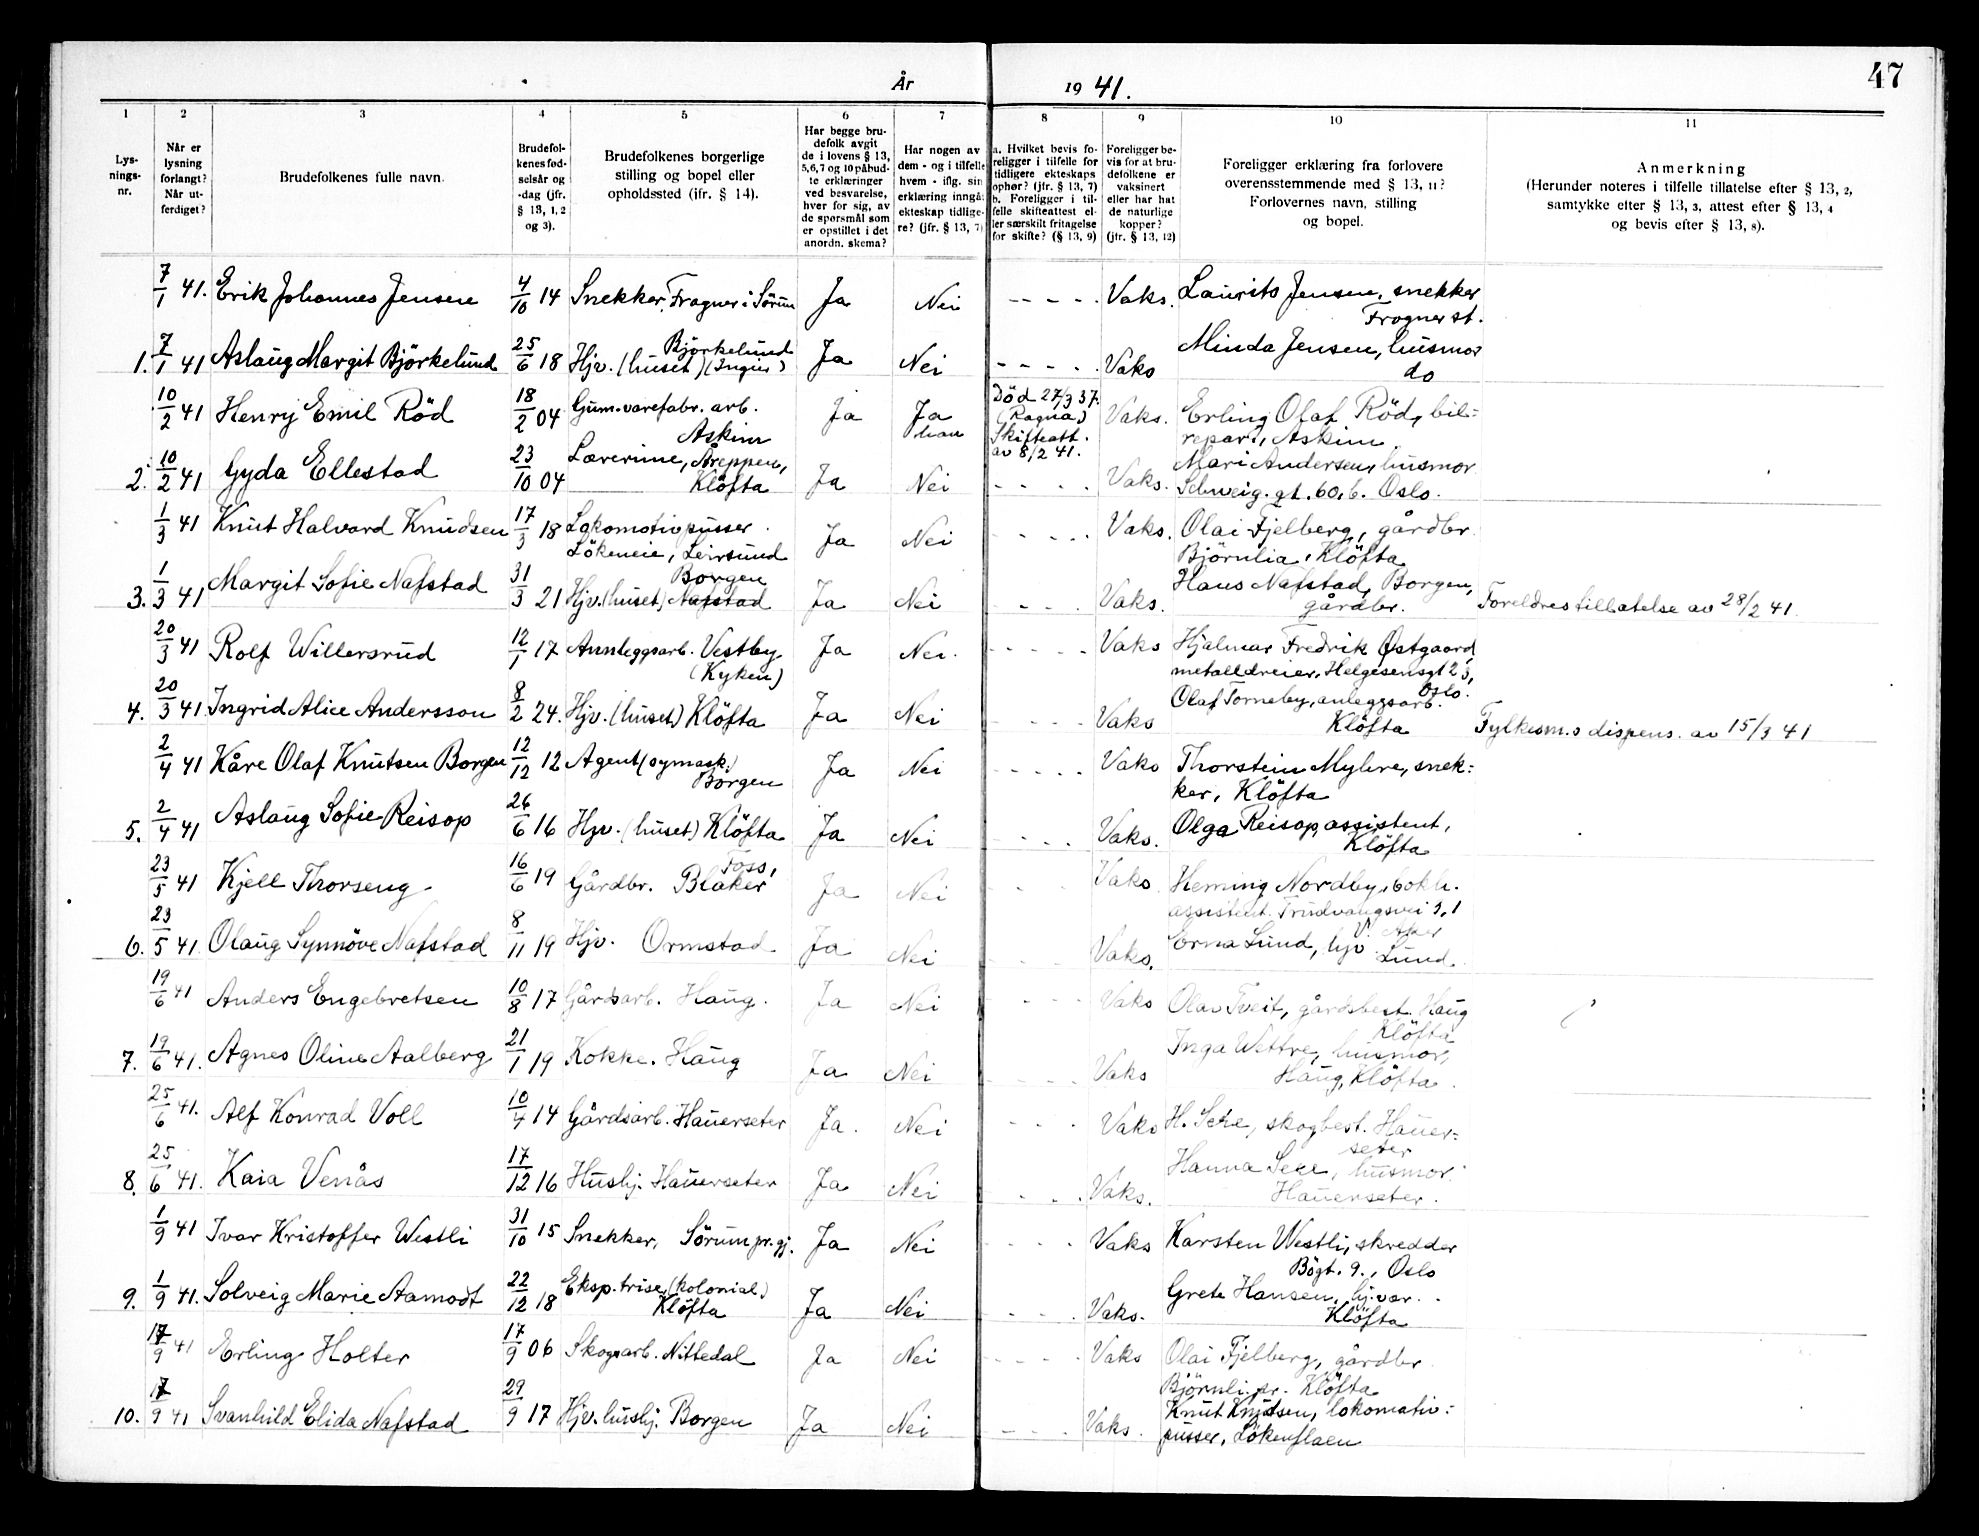 47
År 1941.
1 2 3 4 5 6 7 8 9 10 11
Lys-
nings-
nr.
Når er
lysning
forlangt?
Når ut-
ferdiget?
Brudefolkenes fulle navn.
Brudefol-
kenes fød-
selsår og
-dag (jfr.
§ 13, 1, 2
og 3).
Brudefolkenes borgerlige
stilling og bopel eller
opholdssted (jfr. § 14).
Har begge bru-
defolk avgit
de i lovens § 13,
5,6,7 og 10 påbud-
te erklæringer
ved besvarelse,
hver for sig, av
de spørsmål som
er opstillet i det
anordn. skema?
Har nogen av
dem - og i tilfelle
hvem - iflg. sin
erklæring inngåt
ekteskap tidlige-
re? (jfr. § 13, 7)
a. Hvilket bevis fo-
religger i tilfelle for
tidligere ekteskaps
ophør? (jfr. § 13, 7)
b. Foreligger i til-
felle skifteattest el-
ler særskilt fritagelse
for skifte? (§ 13, 9)
Foreligger be-
vis for at bru-
defolkene er
vaksinert
eller har hat
de naturlige
kopper?
(jfr. § 13, 12)
Foreligger erklæring fra forlovere
overensstemmende med § 13, 11?
Forlovernes navn, stilling
og bopel.
Anmerkning
(Herunder noteres i tilfelle tillatelse efter § 13, 2,
samtykke efter § 13, 3, attest efter § 13, 4
og bevis efter § 13, 8).
7/1 41. Erik Johannes Jensen 4/10 14 Snekker, Frogner i Sörum Ja Nei - - - - Vaks. Laurits Jensen, snekker
Frogner st.
1. 7/1 41 Aslaug Margit Björkelund 25/6 18 Hjv. (huset) Björkelund Ja Nei - - - - - Vaks Minda Jensen, husmor
do
10/2 41 Henry Emil Röd 18/2 04 Gum.varefabr. arb.
Askim Ja Ja
han Död 27/3 37.
(Ragna)
Skifteatt.
av 8/2 41. Vaks. Erling Olaf Röd, bil=
repar., Askim.
2. 10/2 41 Gyda Ellestad 23/10 04 Lærerinne, Åreppen,
Klöfta Ja Nei - - - - Vaks. Mari Andersen, husmor
Schweig. gt. 60, b. Oslo.
1/3 41 Knut Halvard Knudsen 17/3 18 Lokomotivpusser
Lökeneie, Leirsund Ja Nei - - - - Vaks. Olai Fjelberg, gårdbr.
Björnlia, Klöfta
3. 1/3 41 Margit Sofie Nafstad 31/3 21 Hjv. (huset) Nafstad Borgen Ja Nei - - - Vaks. Hans Nafstad, Borgen,
gårdbr. Foreldres tillatelse av 28/2 41.
20/3 41 Rolf Willersrud 12/1 17 Annleggsarb. Vestby
(Kyken) Ja Nei. - - - - - Vaks Hjalmar Fredrik Østgaard,
metalldreier, Helgesensgt 23,
Oslo.
4. 20/3 41 Ingrid Alice Andersson 8/2 24. Hjv. (huset) Klöfta Ja Nei - - - Vaks Olaf Torneby, anleggsarb.
Klöfta Fylkesm.s dispens. av 15/3 41
2/4 41 Kåre Olaf Knutsen Borgen 12/12 12 Agent (symask.)
Borgen Ja Nei - - - - Vaks Thorstein Myhre, snek=
ker, Klöfta
5. 2/4 41 Aslaug Sofie Reisop 26/6 16 Hjv. (huset) Klöfta Ja Nei - - - Vaks. Olga Reisop, assistent,
Klöfta
23/5 41 Kjell Thorseng 16/6 19 Gårdbr. Foss, Blaker Ja Nei - - Vaks Heming Nordby, bokh.
assistent. Trudvangsvei 3, 1
V. Aker
6. 23/5 41. Olaug Synnöve Nafstad 8/11 19 Hjv. Ormstad Ja Nei - - - Vaks. Erna Lund, hjv.
Lund.
19/6 41 Anders Engebretsen 10/8 17 Gårdsarb. Haug. Ja Nei - - - Vaks Olav Tveit, gårdsbest. Haug
Klöfta
7. 19/6 41. Agnes Oline Aalberg 21/1 19 Kokke. Haug Ja Nei - - - Vaks Inga Wettre, husmor,
Haug, Klöfta.
25/6 41. Alf Konrad Voll 10/4 14 Gårdsarb. Hauerseter Ja. Nei - - - Vaks H. Seie, skogbest. Hauer=
seter
8. 25/6 41. Kaia Venås 17/12 16 Hushj. Hauerseter Ja Nei - - - Vaks. Hanna Seie, husmor
Hauerseter.
1/9 41 Ivar Kristoffer Westli 31/10 15 Snekker, Sörum pr. gj. Ja Nei - - - - Vaks Karsten Westli, skredder
Bögt. 9., Oslo
9. 1/9 41. Solveig Marie Aamodt 22/12 18 Eksp.trise (kolonial.)
Klöfta Ja Nei - - - Vaks. Grete Hansen, hj.vær.
Klöfta
17/9 41 Erling Holter 17/9 06 Skogsarb. Nittedal Ja Nei - - - - Vaks Olai Fjelberg, gårdbr.
Björnli pr. Klöfta
10. 17/9 41 Svanhild Elida Nafstad 29/9 17 Hjv. hushj. Borgen Ja Nei - - - Vaks. Knut Knudsen, lokomotiv=
pusser, Lökenflaen